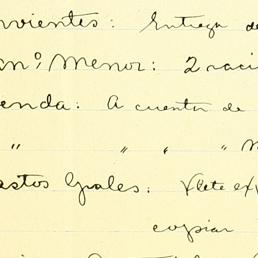 rvientes: Entrega de
mº, Menor: 2 raci
enda: A cuenta de
" " " "
astos Grales: flete ex
copiar